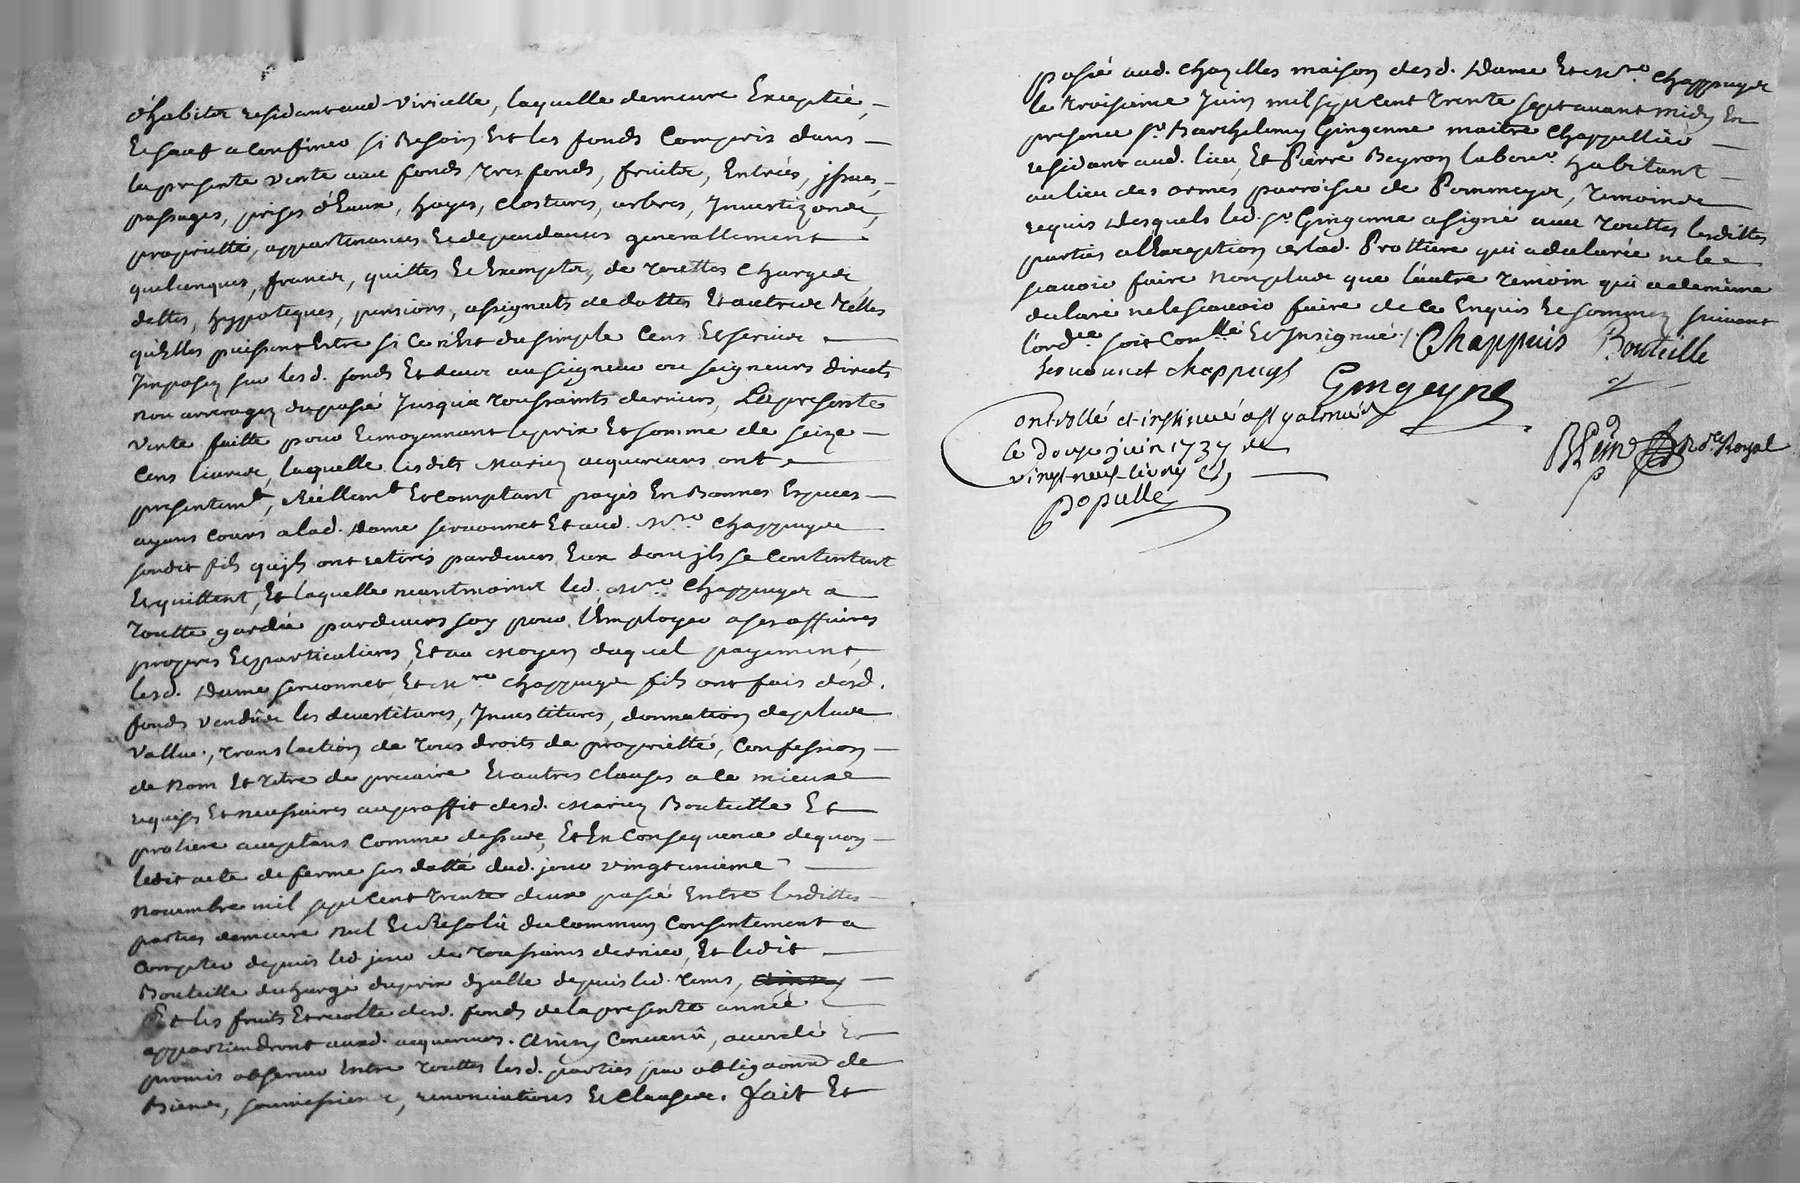 d'habiter residant aud. Viricelle, laquelle demeure Exceptée,
Et sauf a confiner si Besoin Est les fonds Compris dans
la presente vente avec fonds, tres fonds, fruits, Entrées, jssues,
passages, prises d'Eaux, hayes, Clostures, arbres,
proprietté, appartenances Et dependances generallement
quelconques, francs, quittes Et Exempts, de touttes Charges
dettes, hypoteques, pensions, assignats de dottes Et autres telles
qu'Elles puissent Entre si Ce n'Est du simple Cens Et service
Jmposez sur lesd. fonds Et deux au seigneur ou seigneurs directs
non arreragez du passé Jusqu'a toussaints dernier, La presente
vente faitte pour Et moyennant le prix Et somme de seize
Cens livres, laquelle lesdits Mariez acquereurs ont
presentemt, Réellemt Et comptant payés En Bonnes Especes
ayans cours a lad. Dame servonnet Et aud. Mre Chappuys
sondit fils qu'jls ont retirés pardevers Eux dont jls se Contentent
Et quittent, Et laquelle neantmoins led. Mre Chappuys a
toutte gardée pardevers soy pour l'Employer a ses affaires
propres Et particulieres, Et au Moyen duquel payement,
lesd. Dame servonnet Et Mre Chappuys fils ont fais desd.
fonds vendûs les devestitures, Jnvestitures, donnation de plus
vallue, translaction de tous droits de proprietté, Confession
de Nom Et titre de precaire Et autres Clauses a ce mieux
requises Et necessaires au proffit desd. Mariez Bouteille Et
protiere acceptans Comme dessus, Et En Consequence de quoy
ledit acte de ferme sus datté dud. jour vingt unième
novembre mil sept Cent trente deux passé Entre lesdittes
parties demeure nul Et Resolû du commun Consentement a
Compter depuis led. jour de toussains dernier, Et ledit
Bouteille dechargé du prix d'jcelle depuis led. tems,
Et les fruits Et recolte desd. fonds de la presente année
appartiendront auxd. acquereurs. Ainsy Convenû, accordé Et
promis observer Entre touttes lesd. parties par obligaõns de
Biens, soumissions, renonciations Et Clauses. fait Et
passé aud. Chazelles maison desd. Dame Et Mre Chappuys
le troisieme Juin mil sept Cent trente sept avant midy En
presence sr. Barthelemy Gingenne maitre Chappellier
residant aud. lieu, Et Pierre Beyron labour. habitant
au lieu des ormes parroisse de Pommeys, temoins
requis desquels led. sr. Gingenne a signé avec touttes lesdittes
parties a l'Exception de lad. Prottiere qui a declarée ne le
sçavoir faire non plus que l'autre temoin qui a de même
declaré ne le scavoir faire de ce Enquis Et sommez suivant
l'ordce soit Conllé Et Jnsignué.
Chappuis Bouteille
Servonnet Chappuys
Gingeyne
Controllé et insinué a st galmier
le Douze juin 1737 Re
vingt neuf livres
Populle
Royal